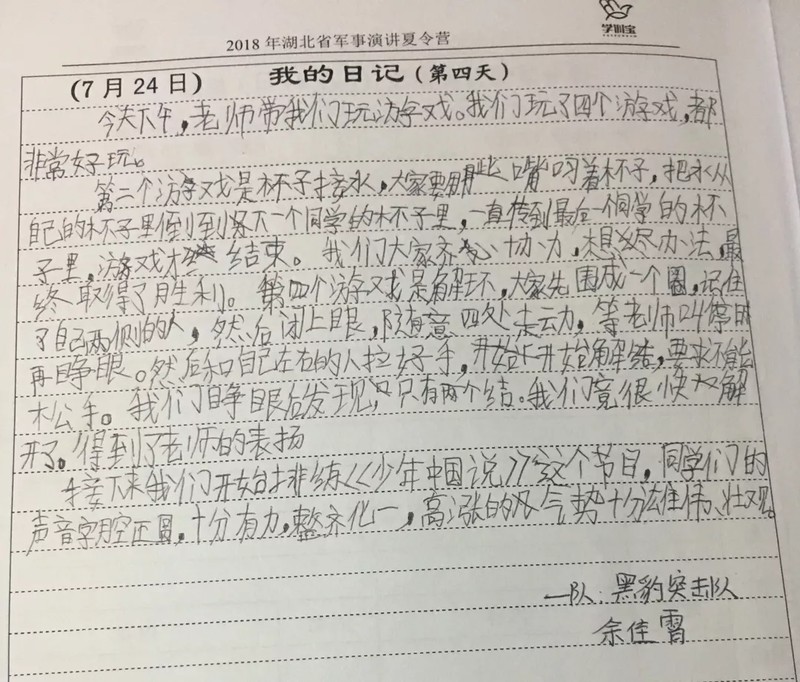 学训宝
2018年湖北省军事演讲夏令营
(7月24日) 我的日记(第四天)
今天下午,老师带我们玩游戏。我们玩了四个游戏,都
非常好玩。
第二个游戏是杯子接水,大家要用嘴叼着杯子,把水从
自己的杯子里倒到下一个同学的杯子里,一直传到最后一个同学的杯
子里,游戏才结束。我们大家齐心协力,想尽办法,最
终取得了胜利。第四个游戏是解环,大家先围成一个圈,记住
了自己两侧的人,然后闭上眼,随意四处走动,等老师叫停时
再睁眼。然后和自己左右的人拉好手,开始解结,要求不能
松手。我们睁眼后发现只有两个结。我们竟很快又解
开了。得到了老师的表扬
接下来我们开始排练《少年中国说》这个节目,同学们的
声音字腔正圆,十分有力,整齐化一,高涨的气势十分雄伟、壮观。
一队:黑豹突击队
余佳霄